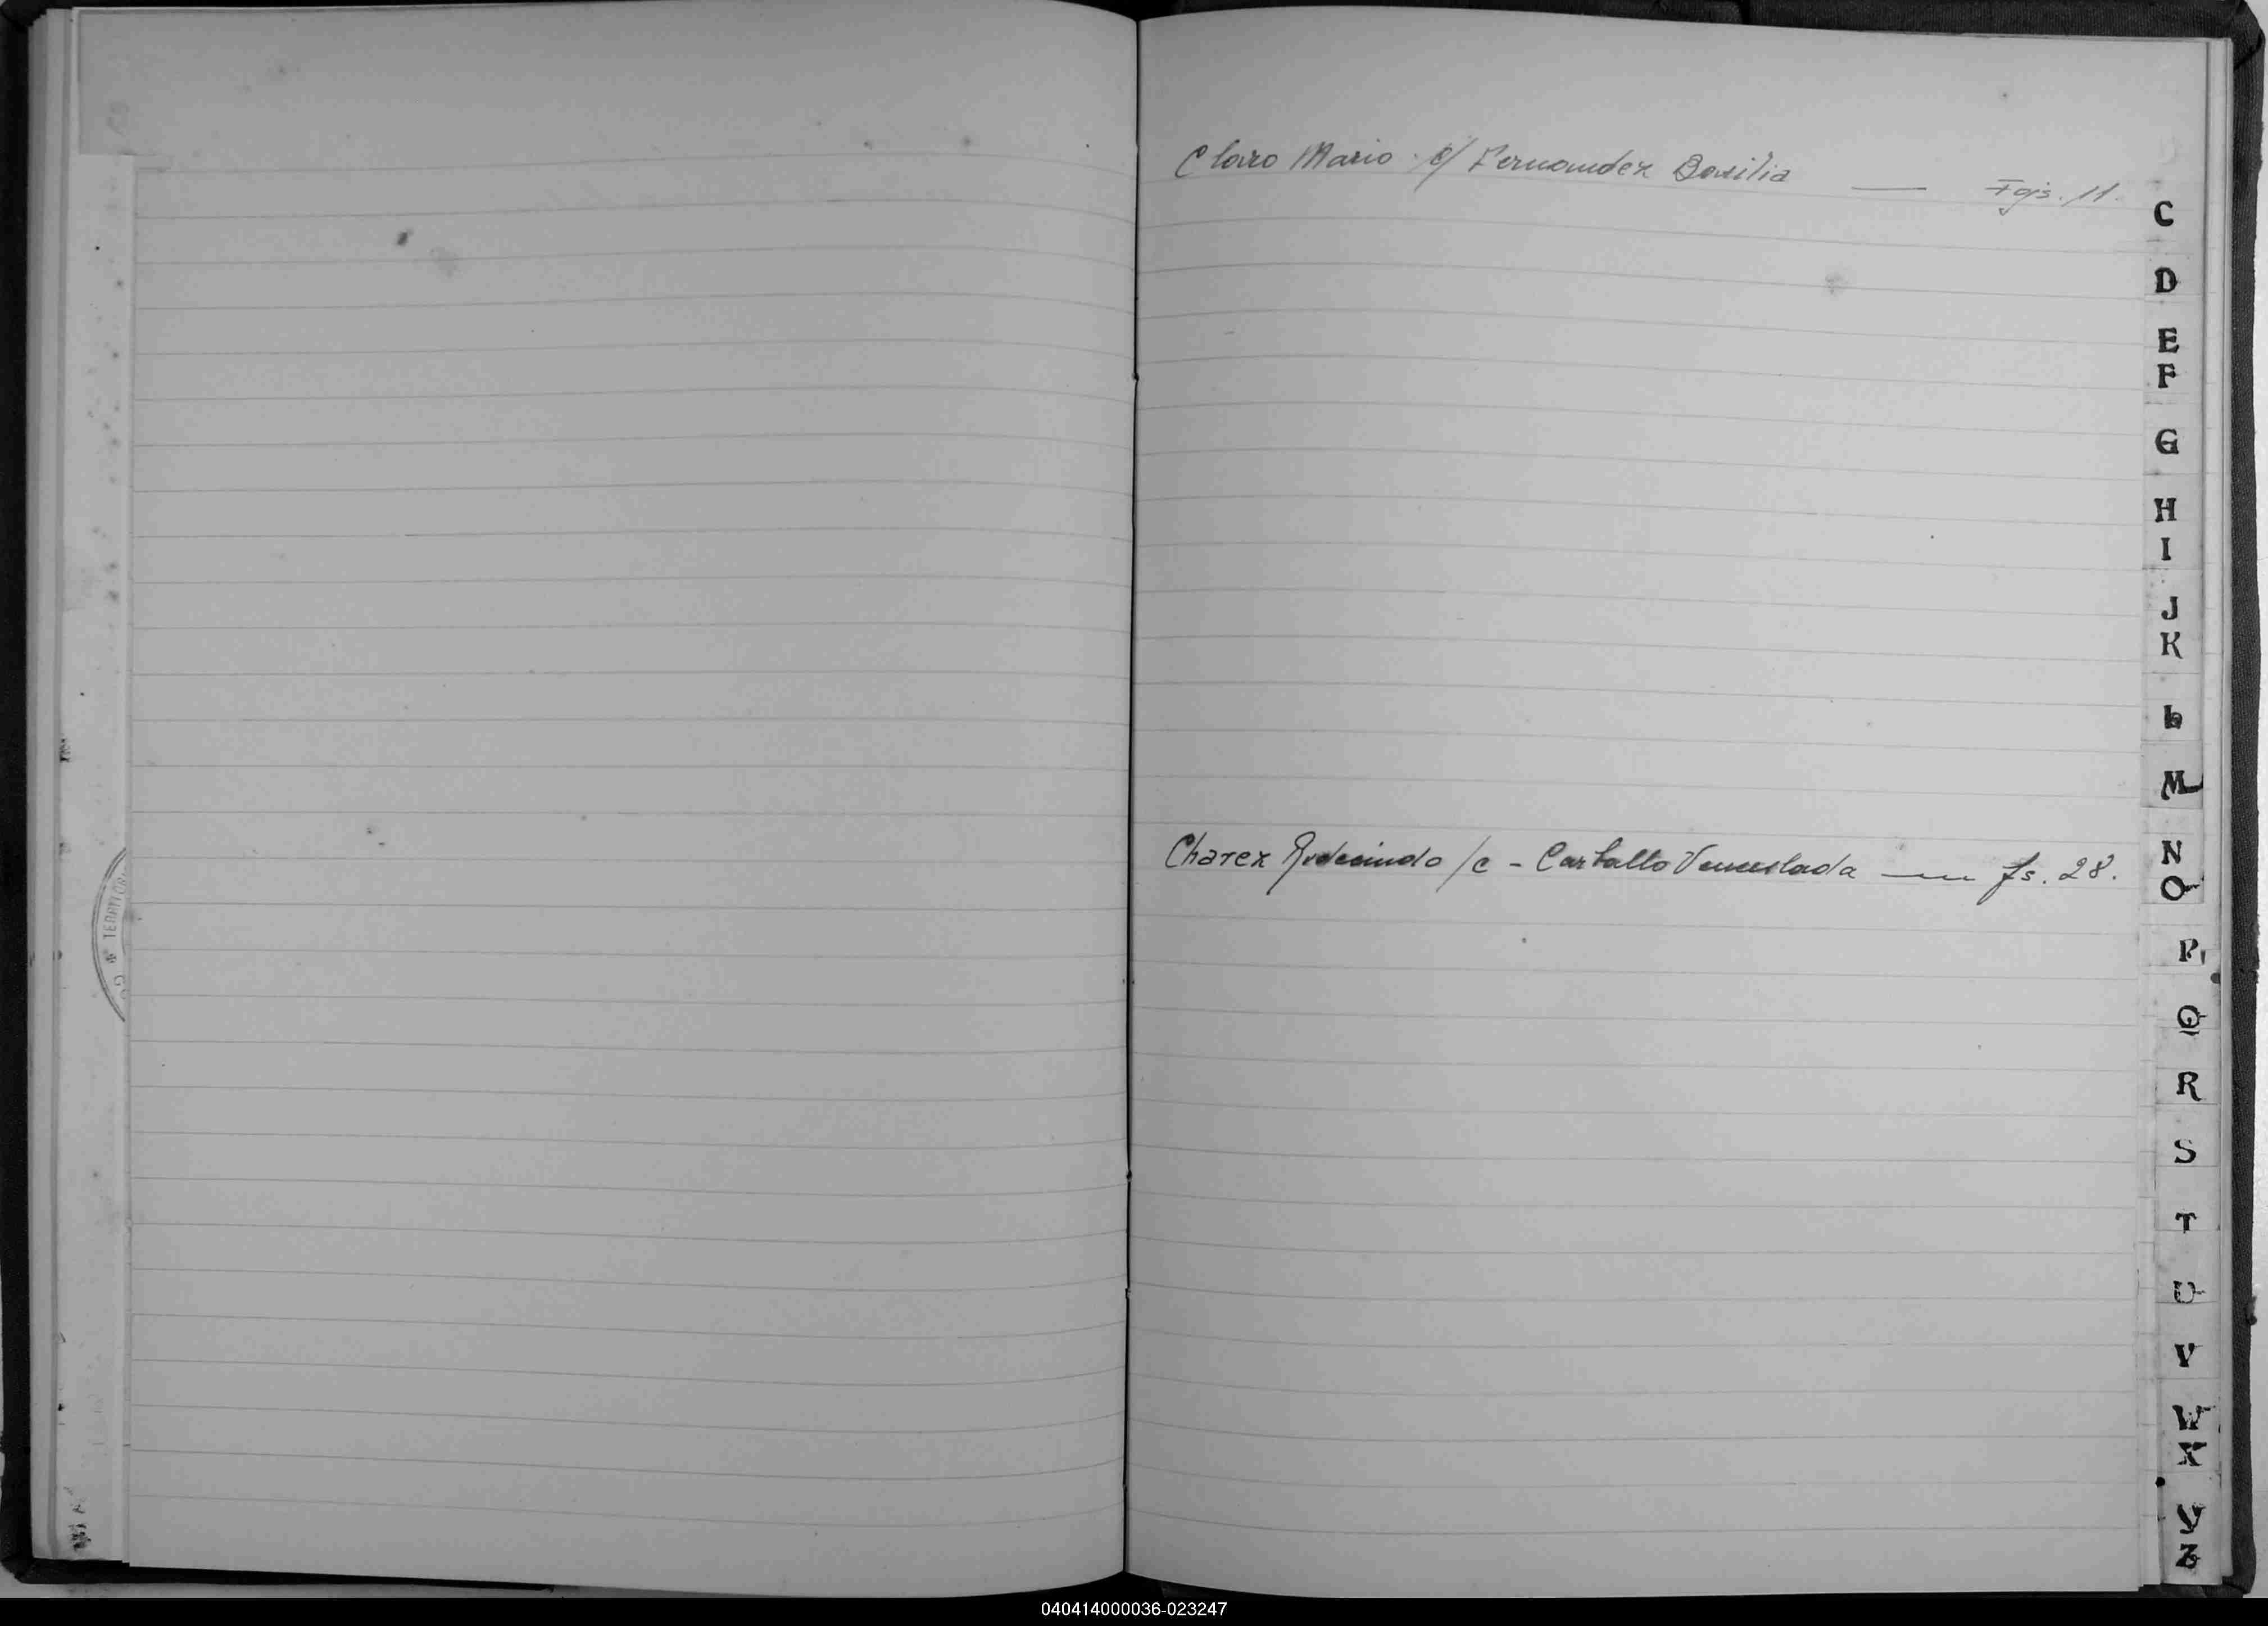 Claro Mario c/ Fernandez Basilia — Fojs. 11.
C
D
E
F
G
H
I
J
K
L
M
Chavez Rudecindo /c - Carballo Venceslada — fs. 28.
N
O
P
Q
R
S
T
U
V
W
X
Y
Z
TERRITORI
040414000036-023247